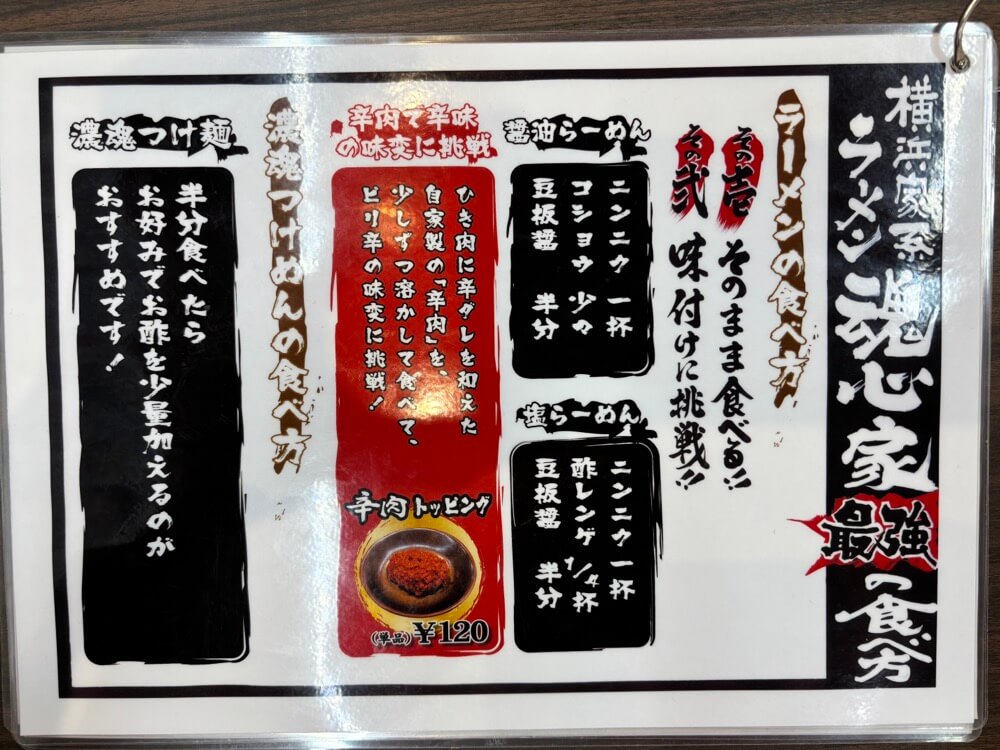 横浜家系
ラーメン魂心家
最強の食べ方
ラーメンの食べ方
その壱
そのまま食べる!!
その弐
味付けに挑戦!!
醤油らーめん
ニンニク 一杯
コショウ 少々
豆板醤 半分
塩らーめん
ニンニク 一杯
酢レンゲ 1/4杯
豆板醤 半分
辛肉で辛味
の味変に挑戦
ひき肉に辛ダレを和えた
自家製の「辛肉」を、
少しずつ溶かして食べて、
ピリ辛の味変に挑戦!
辛肉トッピング
(単品)¥120
濃魂つけめんの食べ方
濃魂つけ麺
半分食べたら
お好みでお酢を少量加えるのが
おすすめです!